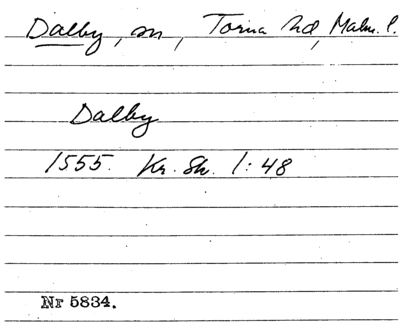 Dalby, sn, Torna hd, Malm. l.
Dalby
1555. Kr. Sk. 1:48
Nr 5834.